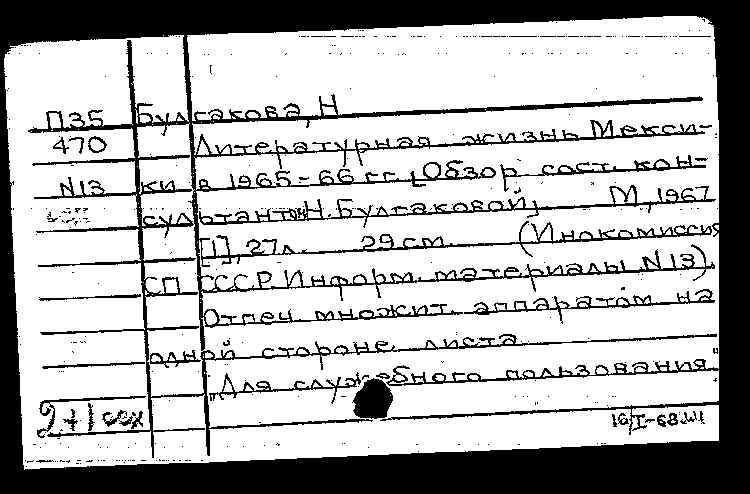 П35 Булгакова, Н
470 Литературная жизнь Мекси-
N13 ки в 1965-66 гг. [Обзор сост. кон-
сультантом Н. Булгаковой]. М., 1967
[1], 27 л. 29 см. (Инокомиссия
СП СССР. Информ. материалы N 13).
Отпеч. множит. аппаратом на
одной стороне листа
"Для служебного пользования."
2+1
16/I-68